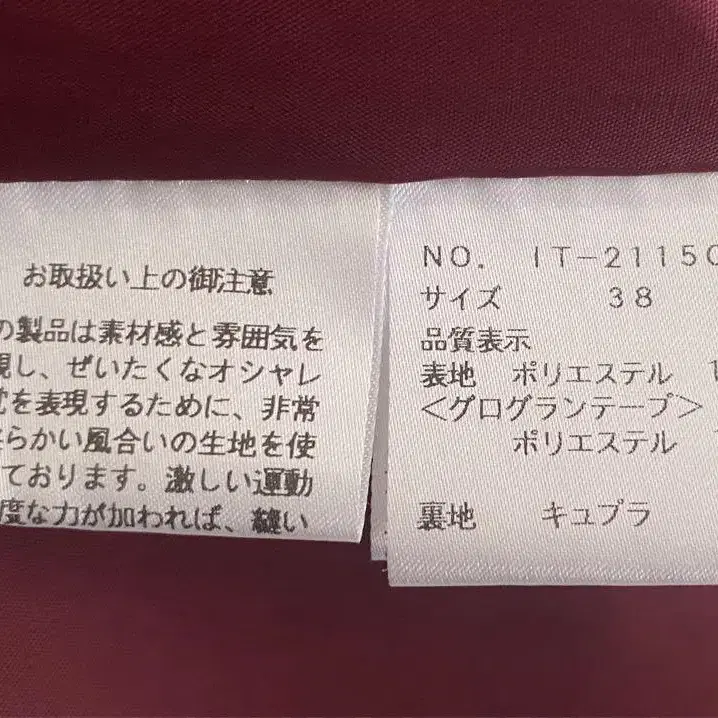 お取扱い上の御注意
の製品は素材感と雰囲気を
現し、ぜいたくなオシャレ
を表現するために、非常
らかい風合いの生地を使
ております。激しい運動
度な力が加われば、縫い
NO. IT-2115
サイズ 38
品質表示
表地 ポリエステル 1
<グログランテープ>
ポリエステル
裏地 キュプラ